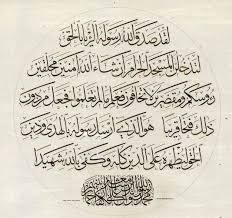 لقد صدق الله رسوله الرؤيا بالحق
لتدخلن المسجد الحرام إن شاء الله آمنين محلقين
رؤسكم ومقصرين لا تخافون فعلم ما لم تعلموا فجعل من دون
ذلك فتحا قريبا هو الذي أرسل رسوله بالهدى ودين
الحق ليظهره على الدين كله وكفى بالله شهيدا